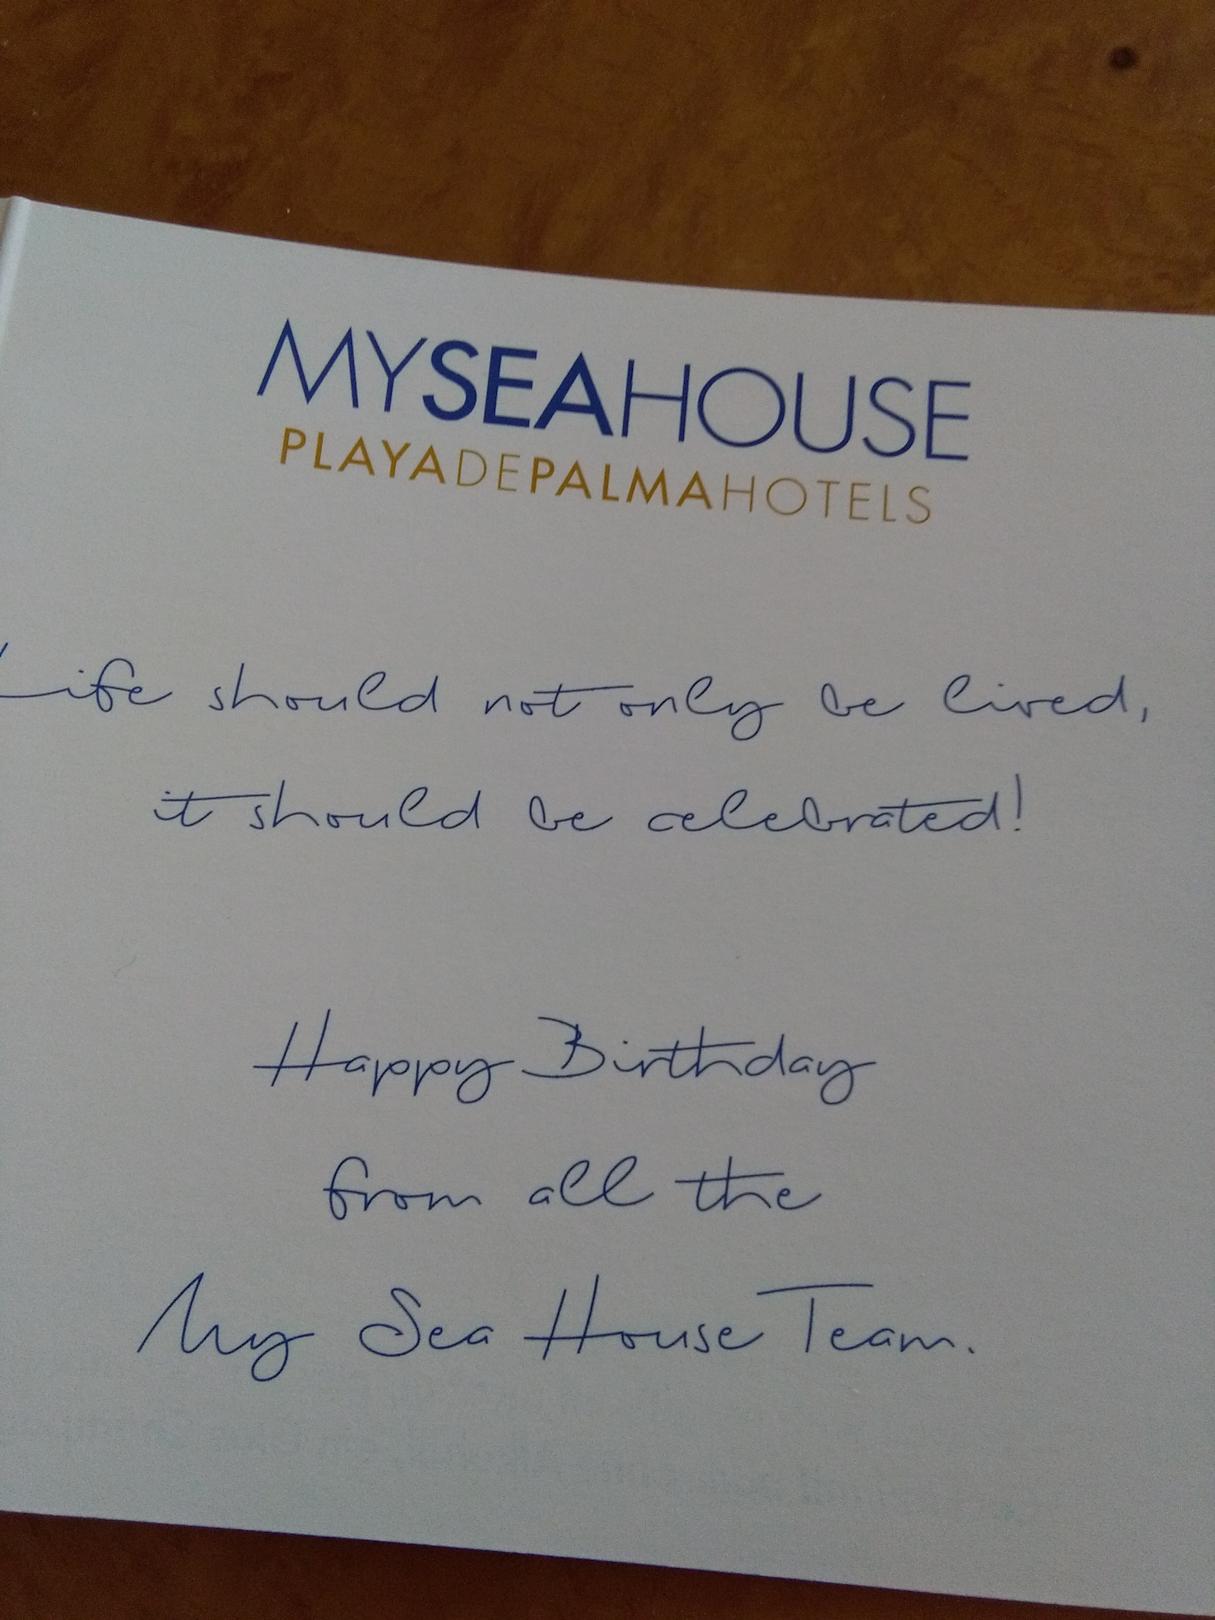 MYSEAHOUSE
PLAYADEPALMAHOTELS
Life should not only be lived,
it should be celebrated!
Happy Birthday
from all the
My Sea House Team.